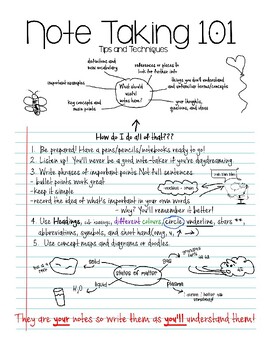 Note Taking 101
Tips and Techniques
definitions and new vocabulary
references or places to look for further info
important examples
What should useful notes have?
things you don't understand
key concepts and main points
your thoughts, questions, and ideas
How do I do all of that???
1. Be prepared! Have a pens/pencils/notebooks ready to go!
2. Listen up! You'll never be a good note-taker if you're daydreaming.
3. Write phrases of important points. Not full sentences.
- bullet points work great
- keep it simple
-record the idea of what's important in your own words
- why? You'll remember it better!
4. Use Headings, sub headings, different colours, circle, underline, stars **,
abbreviations, symbols, and short hand(omg, u, → )
5. Use concept maps and diagrams or doodles.
solid
gas
states of matter
liquid
plasma
H2O
They are your notes so write them as you'll understand them!